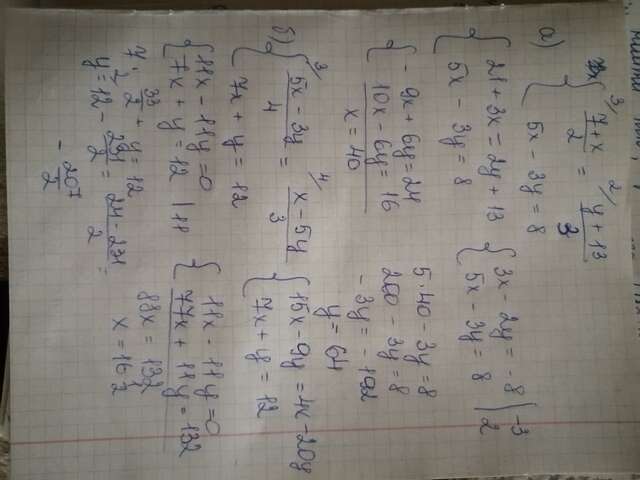 а) { 3/ (7+x)/2 = 2/ (y+13)/3
5x - 3y = 8
{ 21 + 3x = 2y + 13
5x - 3y = 8
{ 3x - 2y = -8 | -3
5x - 3y = 8 | 2
{ - 9x + 6y = 24
10x - 6y = 16
x = 40
5·40 - 3y = 8
200 - 3y = 8
-3y = -192
y = 64
б) { 3/ (5x - 3y)/4 = 4/ (x - 5y)/3
7x + y = 12
{ 15x - 9y = 4x - 20y
7x + y = 12
{ 11x - 11y = 0
7x + y = 12 | 11
{ 11x - 11y = 0
77x + 11y = 132
88x = 132
7 · 33/2 + y = 12
y = 12 - 231/2 = (24 - 231)/2 =
- 207/2